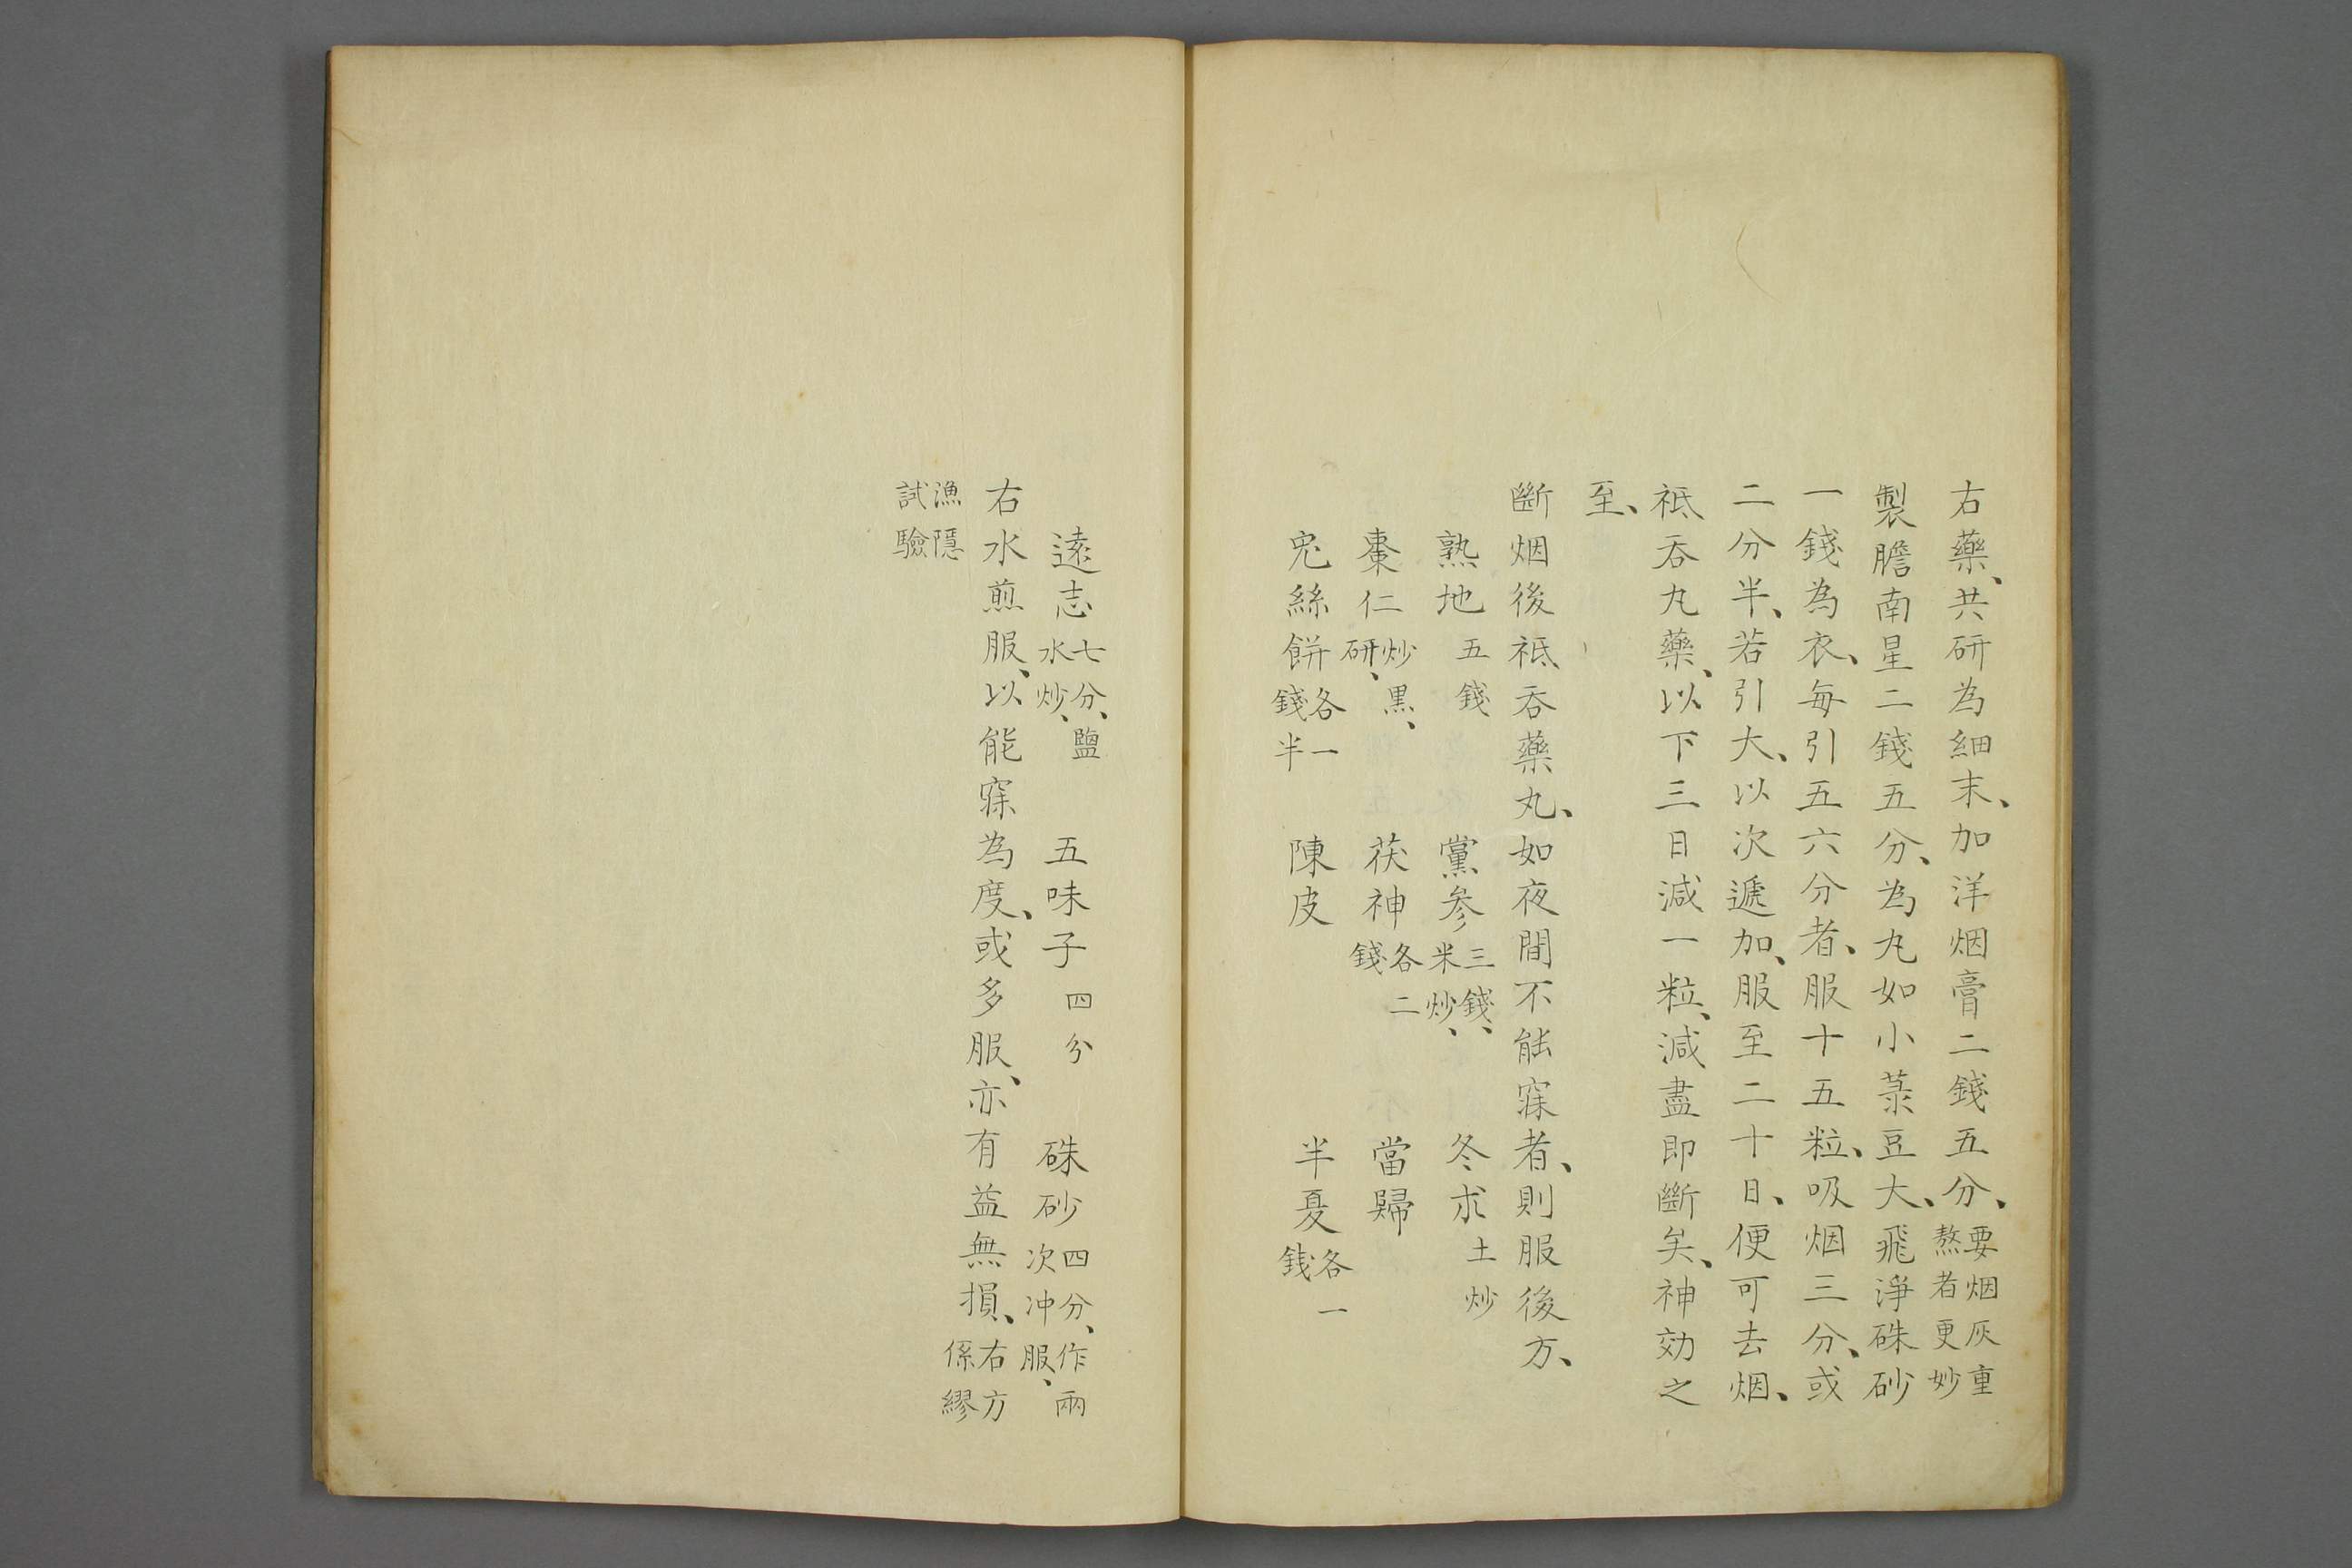 右藥、共研為細末、加洋烟膏二錢五分、要烟灰重熬者更妙
製膽南星二錢五分、為丸如小菉豆大、飛淨硃砂
一錢為衣、每引五六分者、服十五粒、吸烟三分、或
二分半、若引大、以次遞加、服至二十日、便可去烟、
祗吞丸藥、以下三日減一粒、減盡即斷矣、神効之
至、
斷烟後祗吞藥丸、如夜間不能寐者、則服後方、
熟地五錢 黨參三錢、米炒、 冬朮土炒
棗仁炒黑、研、 茯神各二錢 當歸
兔絲餅各一錢半 陳皮 半夏各一錢
遠志七分、鹽水炒、 五味子四分 硃砂四分、作兩次冲服、
右水煎服、以能寐為度、或多服、亦有益無損、右方係繆
漁隱試驗